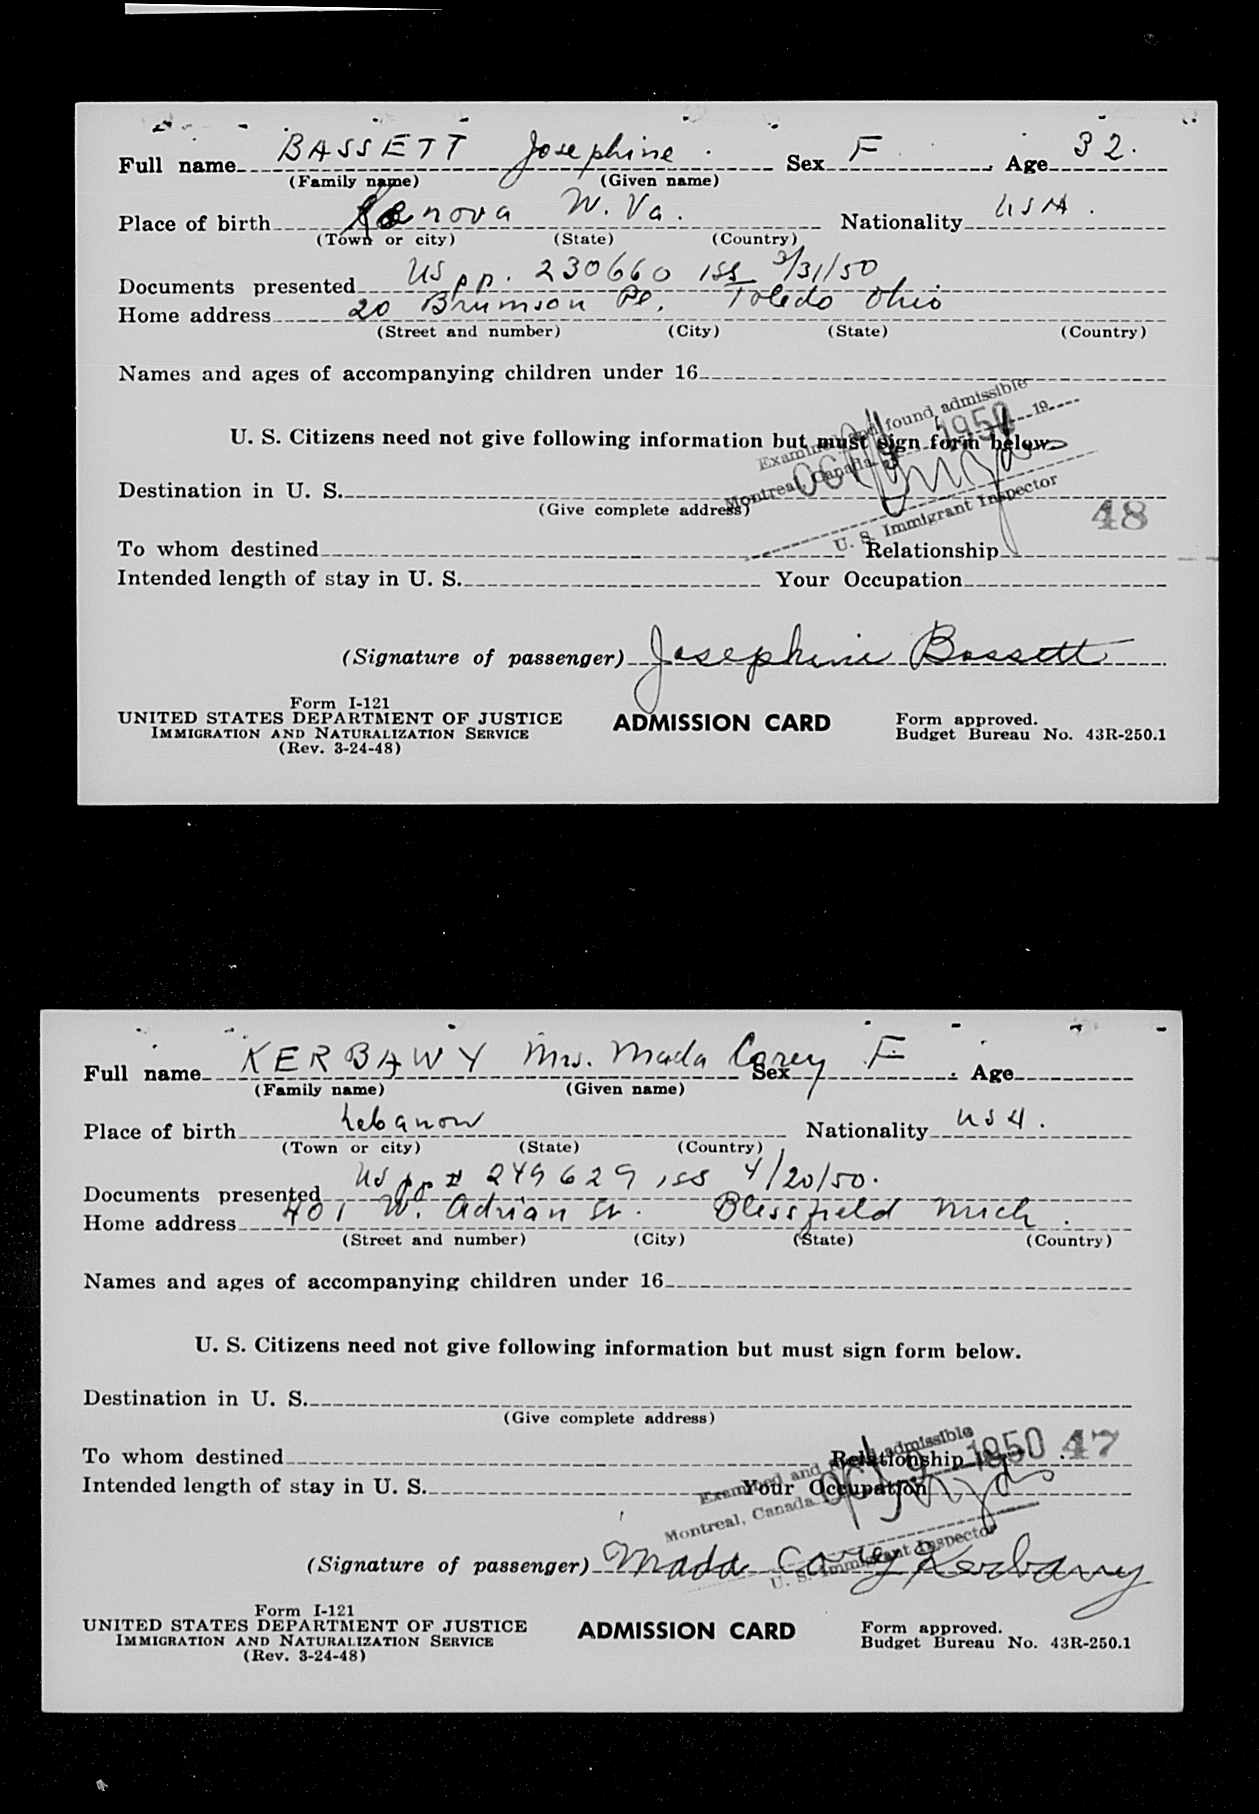 Full name BASSETT Josephine Sex F Age 32.
(Family name) (Given name)
Place of birth Kenova W. Va. Nationality USA.
(Town or city) (State) (Country)
Documents presented US pp. 230660 iss 3/31/50
Home address 20 Brumson Pl. Toledo Ohio
(Street and number) (City) (State) (Country)
Names and ages of accompanying children under 16
Examined and found admissible
U. S. Citizens need not give following information but must sign form below.
Montreal, Canada OCT 1950 19
Destination in U. S.
(Give complete address)
U. S. Immigrant Inspector
48
To whom destined Relationship
Intended length of stay in U. S. Your Occupation
(Signature of passenger) Josephine Bassett
Form I-121
UNITED STATES DEPARTMENT OF JUSTICE ADMISSION CARD Form approved.
IMMIGRATION AND NATURALIZATION SERVICE Budget Bureau No. 43R-250.1
(Rev. 3-24-48)
Full name KERBAWY Mrs. Mada Corey Sex F Age
(Family name) (Given name)
Place of birth Lebanon Nationality USA.
(Town or city) (State) (Country)
Documents presented US pp # 249629 iss 4/20/50.
Home address 401 W. Adrian St. Blissfield Mich.
(Street and number) (City) (State) (Country)
Names and ages of accompanying children under 16
U. S. Citizens need not give following information but must sign form below.
Destination in U. S.
(Give complete address)
To whom destined Relationship 47
Intended length of stay in U. S. Your Occupation
Examined and found admissible
Montreal, Canada OCT 9 1950
U. S. Immigrant Inspector
(Signature of passenger) Mada Corey Kerbawy
Form I-121
UNITED STATES DEPARTMENT OF JUSTICE ADMISSION CARD Form approved.
IMMIGRATION AND NATURALIZATION SERVICE Budget Bureau No. 43R-250.1
(Rev. 3-24-48)